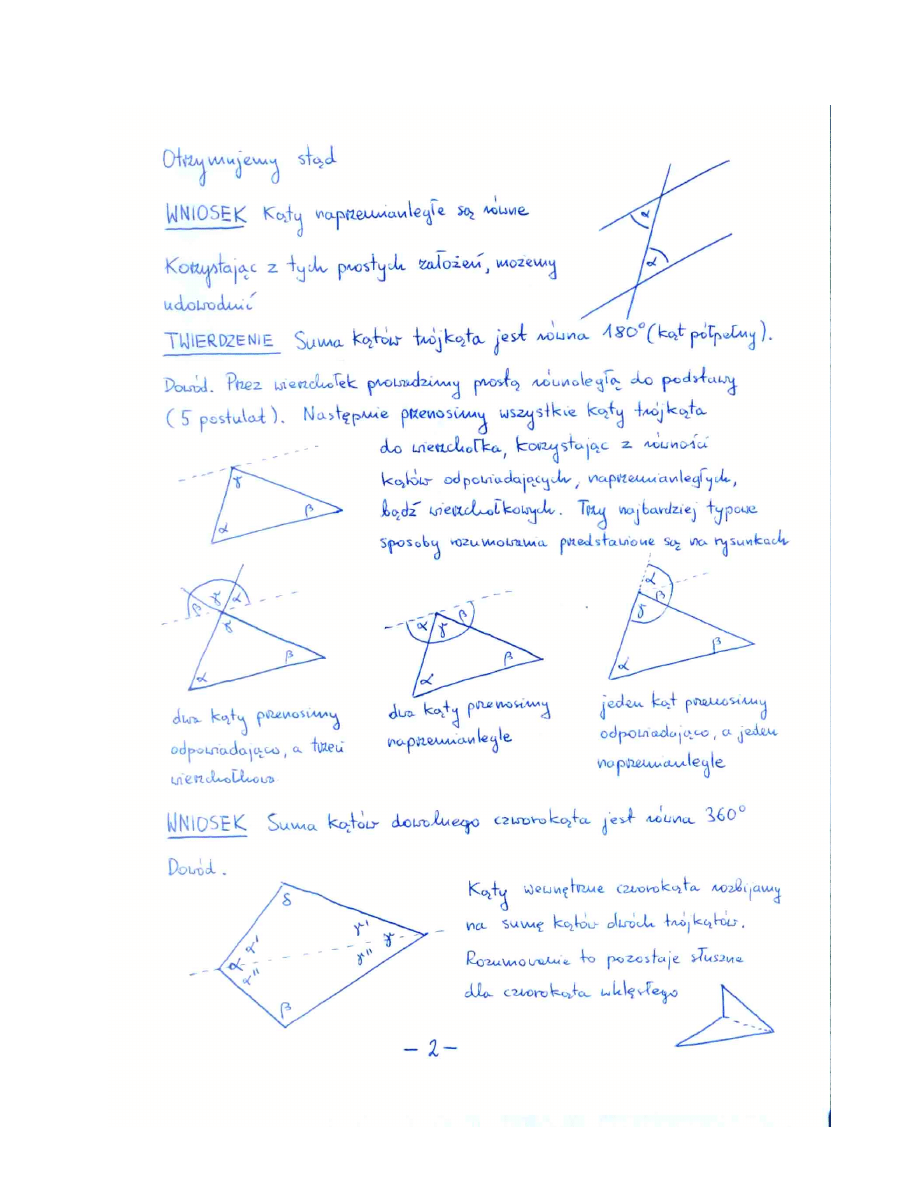 Otrzymujemy stąd
WNIOSEK Kąty naprzemianległe są równe
α
α
Korzystając z tych prostych założeń, możemy
udowodnić
TWIERDZENIE Suma kątów trójkąta jest równa 180° (kąt półpełny).
Dowód. Przez wierzchołek prowadzimy prostą równoległą do podstawy
(5 postulat). Następnie przenosimy wszystkie kąty trójkąta
do wierzchołka, korzystając z równości
kątów odpowiadających, naprzemianległych,
bądź wierzchołkowych. Trzy najbardziej typowe
sposoby rozumowania przedstawione są na rysunkach
γ
α β
β γ α
γ
α β
α γ β
α β
α
β
γ
α β
dwa kąty przenosimy
odpowiadająco, a trzeci
wierzchołkowo
dwa kąty przenosimy
naprzemianlegle
jeden kąt przenosimy
odpowiadająco, a jeden
naprzemianlegle
WNIOSEK Suma kątów dowolnego czworokąta jest równa 360°
Dowód.
δ
α' γ'
α γ
α'' γ''
β
Kąty wewnętrzne czworokąta rozbijamy
na sumę kątów dwóch trójkątów.
Rozumowanie to pozostaje słuszne
dla czworokąta wklęsłego
- 2 -